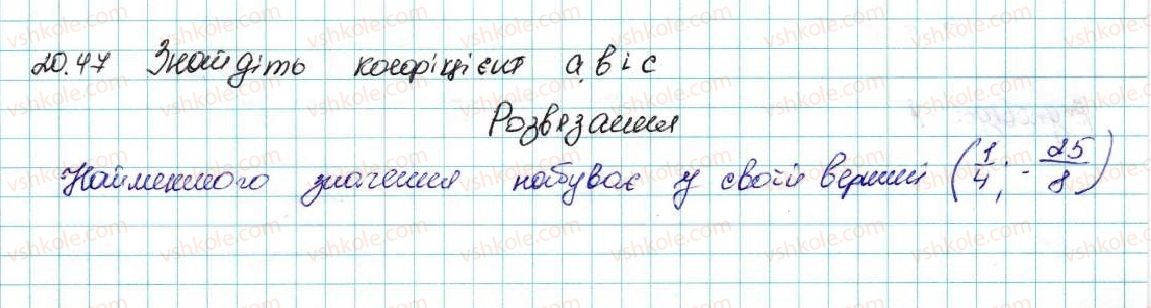 20.47 Знайдіть коефіцієнт а, в і с
Розвязання
Найменшого значення набуває у своїй вершині (1/4; -25/8)